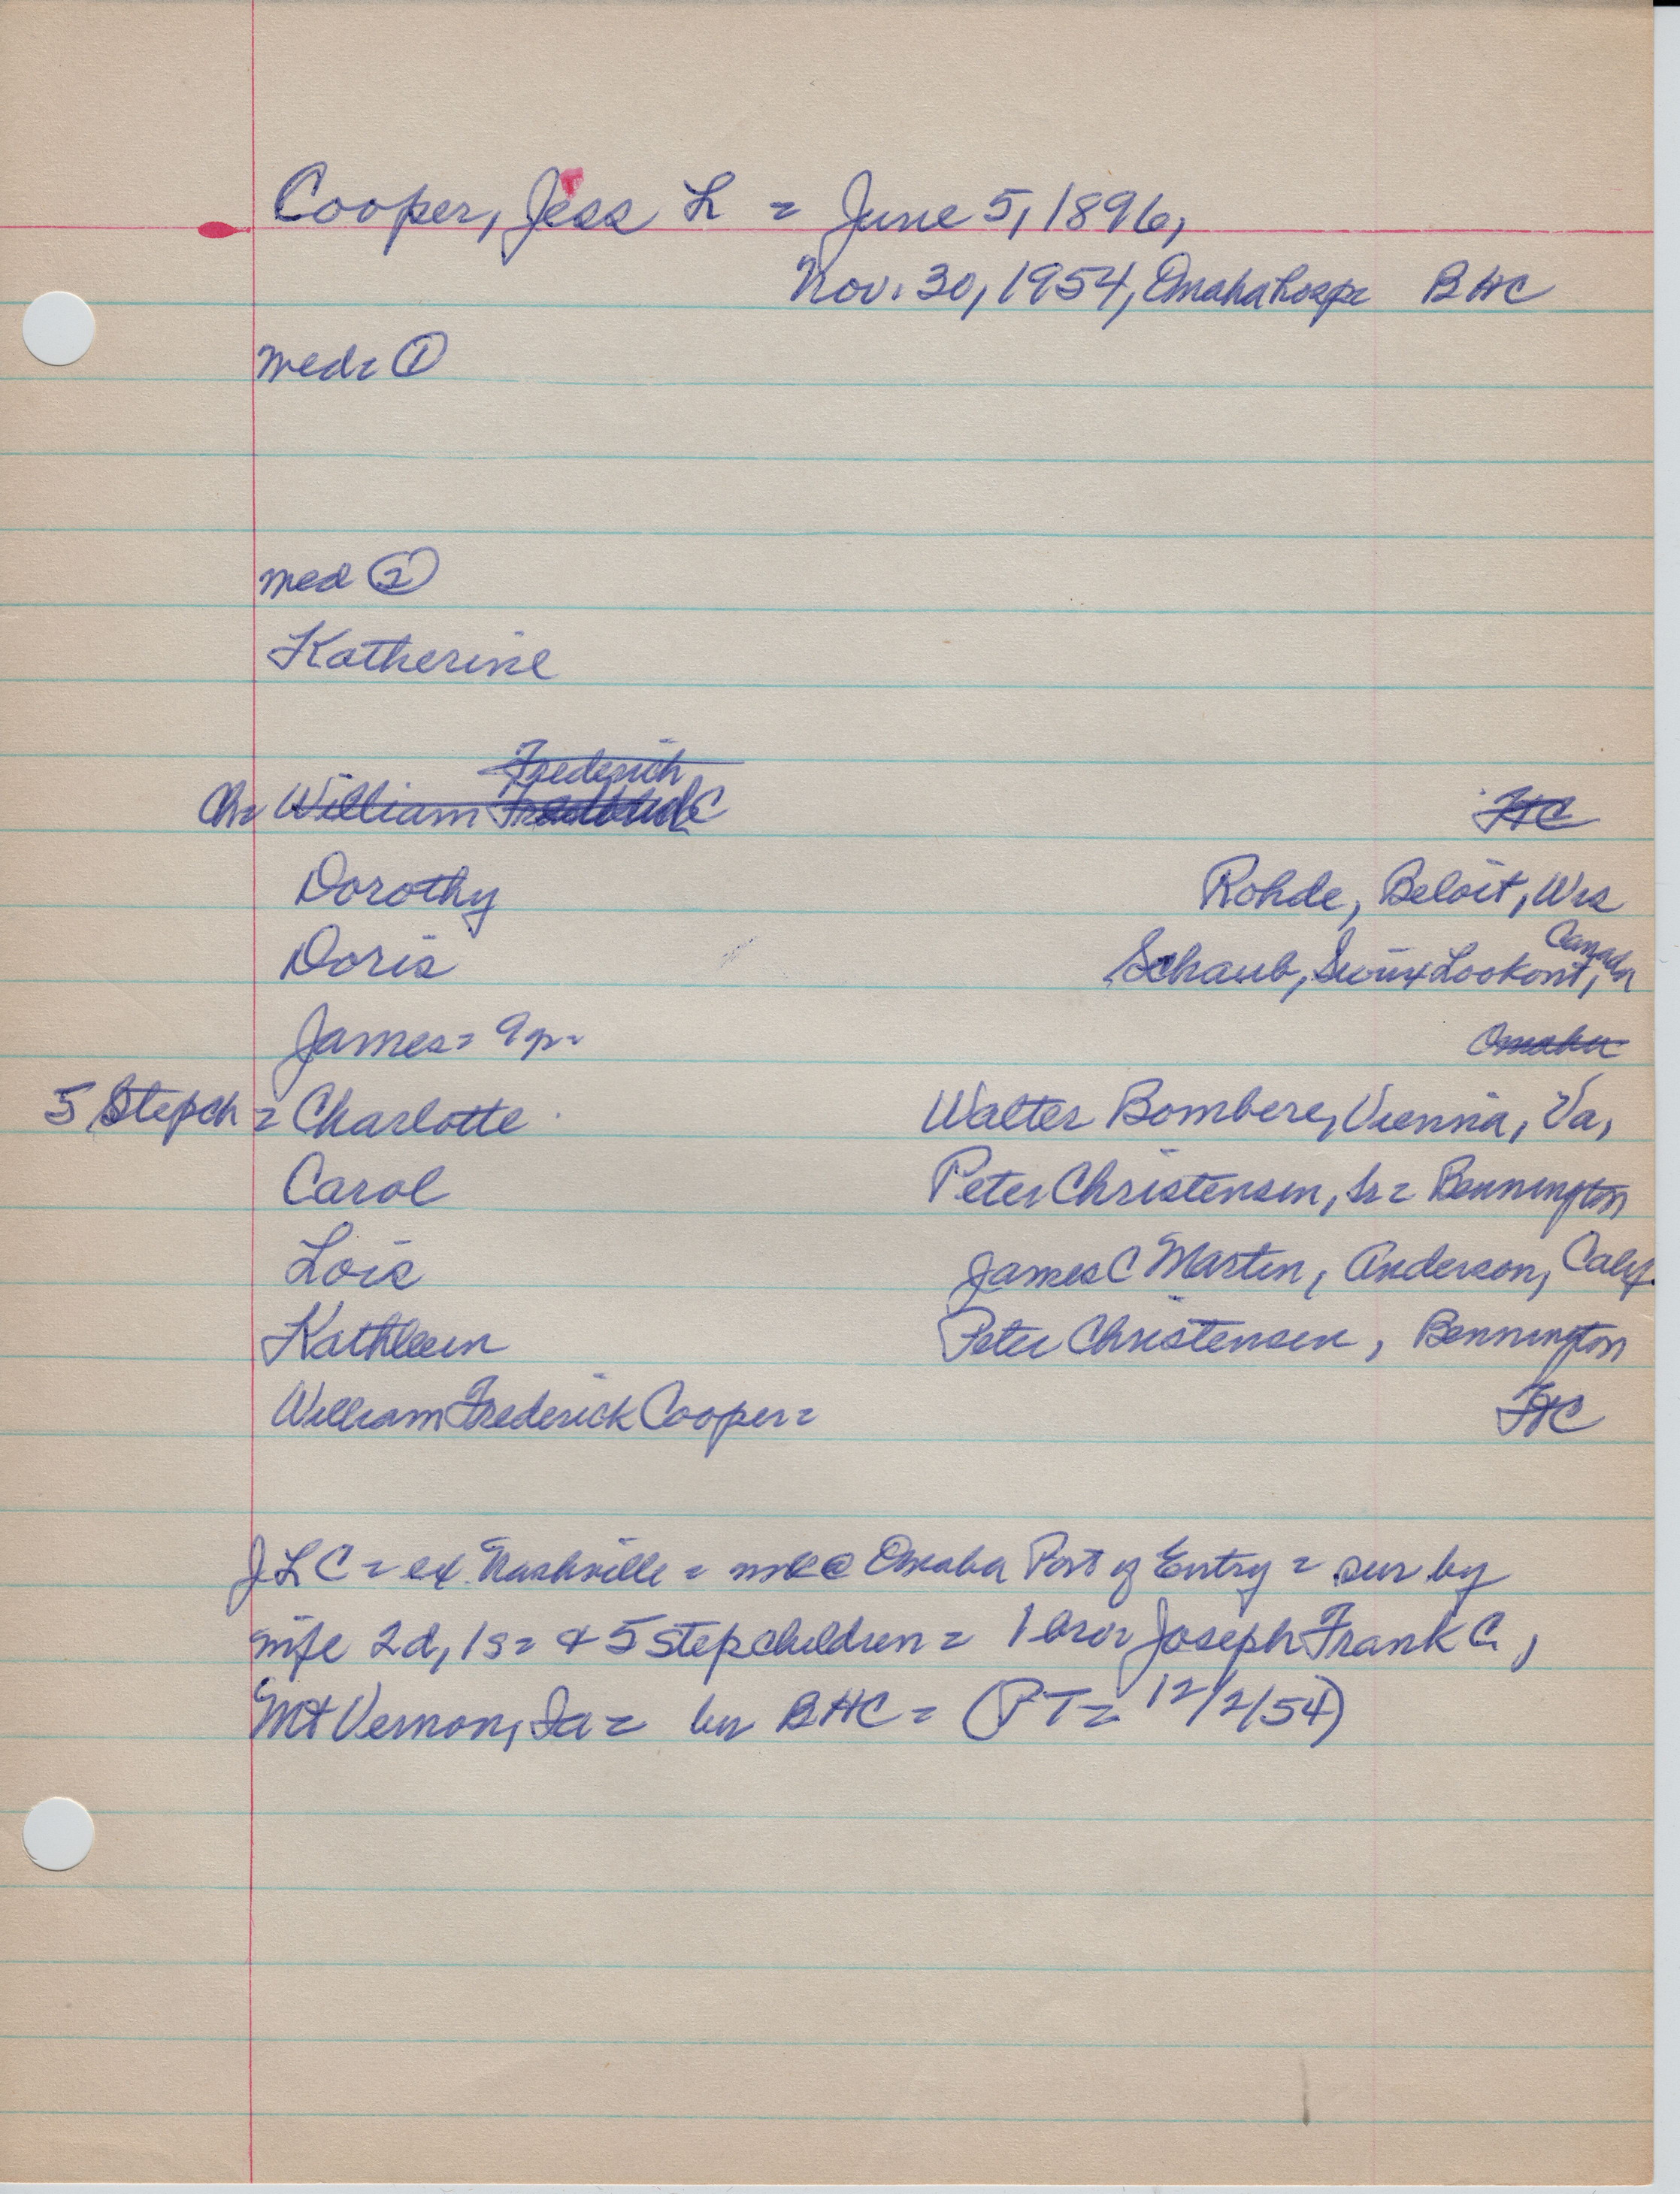 Cooper, Jess L = June 5, 1896,
Nov. 30, 1954, Omaha hosp = BHC
med = ①
med ②
Katherine
Frederich
Ch = William C FHC
Dorothy Rohde, Beloit, Wis
Doris Schaub, Sioux Lookout, Canada
James = 9 gr = Omaha
5 Stepch = Charlotte Walter Bombere, Vienna, Va,
Carol Peter Christensen, Sr = Bennington
Lois James C Martin, Anderson, Calif
Kathleen Peter Christensen, Bennington
William Frederick Cooper = FHC
JLC = ex Nashville = @ Omaha Port of Entry = sur by
wife 2d, 1s = & 5 stepchildren = 1 bro = Joseph Frank C,
Mt Vernon, Ia = bur BHC = (PT = 12/2/54)